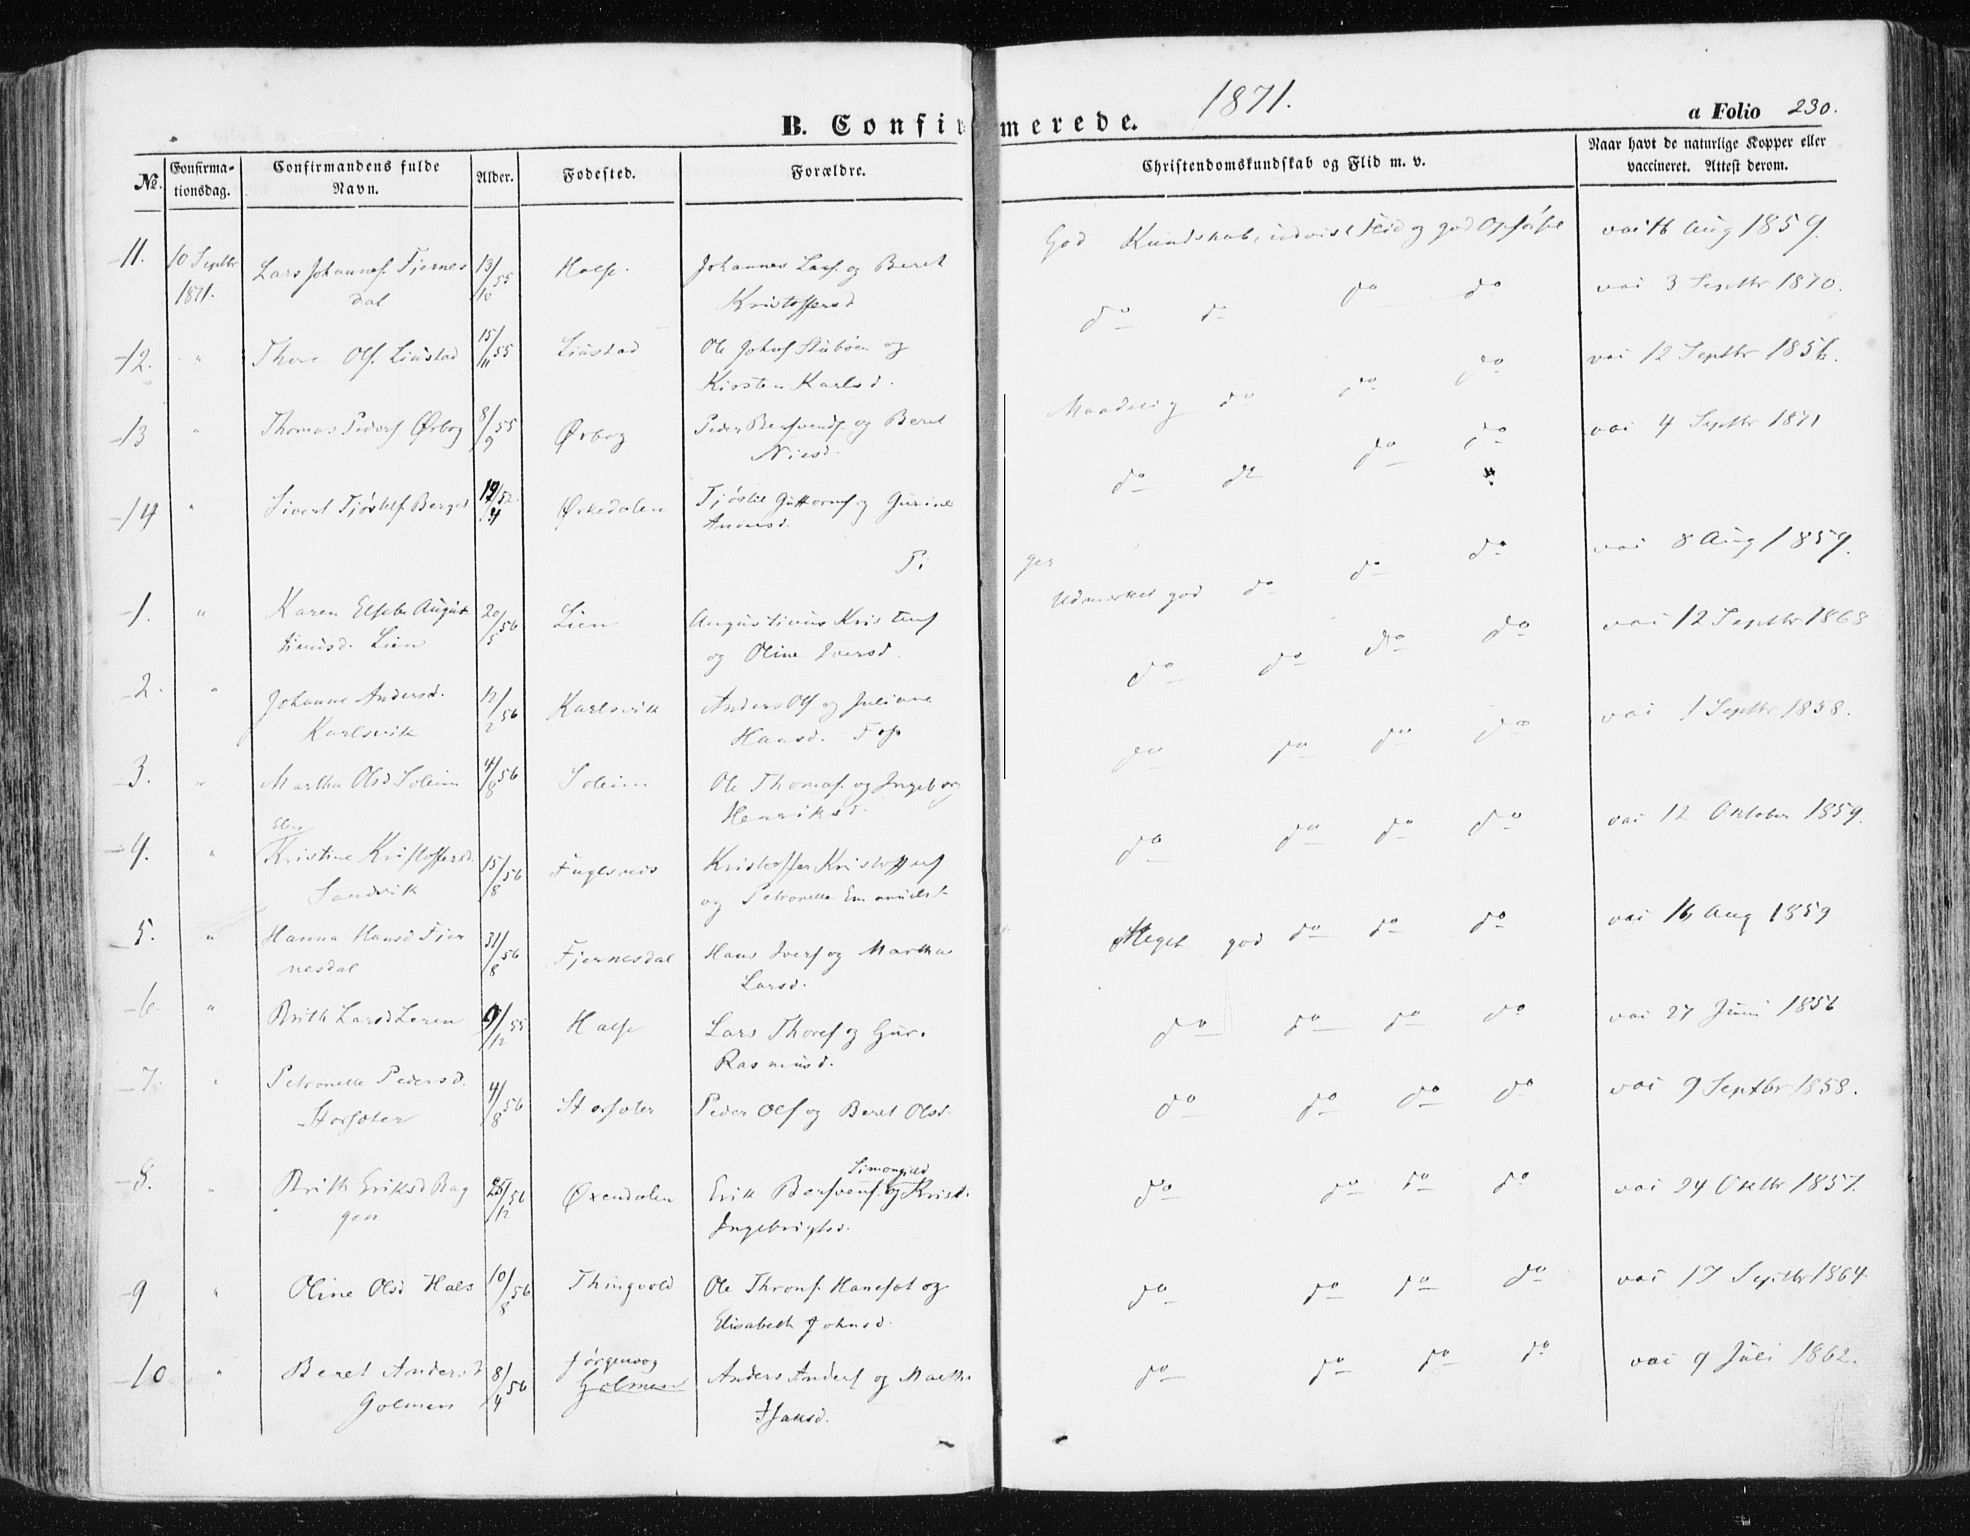 1871.
B. Confirmerede.
a Folio 230.
No.
Confirma-
tionsdag.
Confirmandens fulde
Navn.
Alder.
Fødested.
Forældre.
Christendomskundskab og Flid m. v.
Naar havt de naturlige Kopper eller
vaccineret. Attest derom.
11. 10 Septbr 1871. Lars Johannes. Fjernes 13/10 55 Halse. Johannes Lars. og Beret God Kundskab, udvist Flid og god Opførsel vac 16 Aug 1859.
dal Kristoffersd
12. " Thore Ols. Liustad 15/11 55 Liustad Ole Johns Stubøen og do do do do vac 3 Septbr 1870.
Kirsten Karlsd.
13 " Thomas Peders Ørbog 8/9 55 Ørbog Peder Bersvends. og Beret Maadelig do do do vac 12 Septbr 1856.
Nilsd.
14 " Sivert Tjøstels. Berget 19/4 52 Ørkedalen Tjøstel Guttorms. og Gurine do do do do vac 4 Septbr 1871
Andersd.
Pi ger
1. " Karen Elsebe Augus 20/5 56 Lien Augustinus Kristens Udmærket god do do do vac 8 Aug 1859.
tinusd. Lien og Oline Iversd.
2. " Johanne Andersd. 12/2 56 Karlsvik Anders Ols og Juliane do do do do vac 12 Septbr 1868
Karlsvik Hansd.
3. " Martha Olsd Soleim 4/8 56 Soleim Ole Thomas. og Ingeborg do do do do vac 1 Septbr 1858.
Henriksd.
4. " Elen
Kristine Kristoffersd. 15/8 56 Fuglsnes Kristoffer Kristoffers do do do do vac 12 Oktober 1859.
Sandvik og Petronelle Emanuelsd.
5. " Hanna Hansd Fjer 31/8 56 Fjernesdal Hans Ivers og Martha Meget god do do do vac 16 Aug 1859
nesdal Larsd.
6. " Brith Larsd Leren 9/12 55 Halse Lars Thores og Guri do do do do vac 27 Juni 1856
Rasmusd.
7. " Petronelle Pedersd. 4/8 56 Storsøter Peder Ols og Beret Olsd. do do do do vac 9 Septbr 1858.
Storsøter
8. " Brith Eriksd Bag 25/12 56 Øxendalen Erik Bersvens. og Krist. do do do do vac 24 Oktbr 1857.
gen Ingebrigtsd.
9 " Oline Olsd Hals 10/8 56 Thingvold Ole Throns. Hanesæt og do do do do vac 17 Septbr 1864.
Elisabeth Johnsd.
10 " Beret Andersd 8/4 56 Jørgenvog Golmen Anders Anders og Marth. do do do do vac 9 Juli 1862.
Golmen Isaksd.